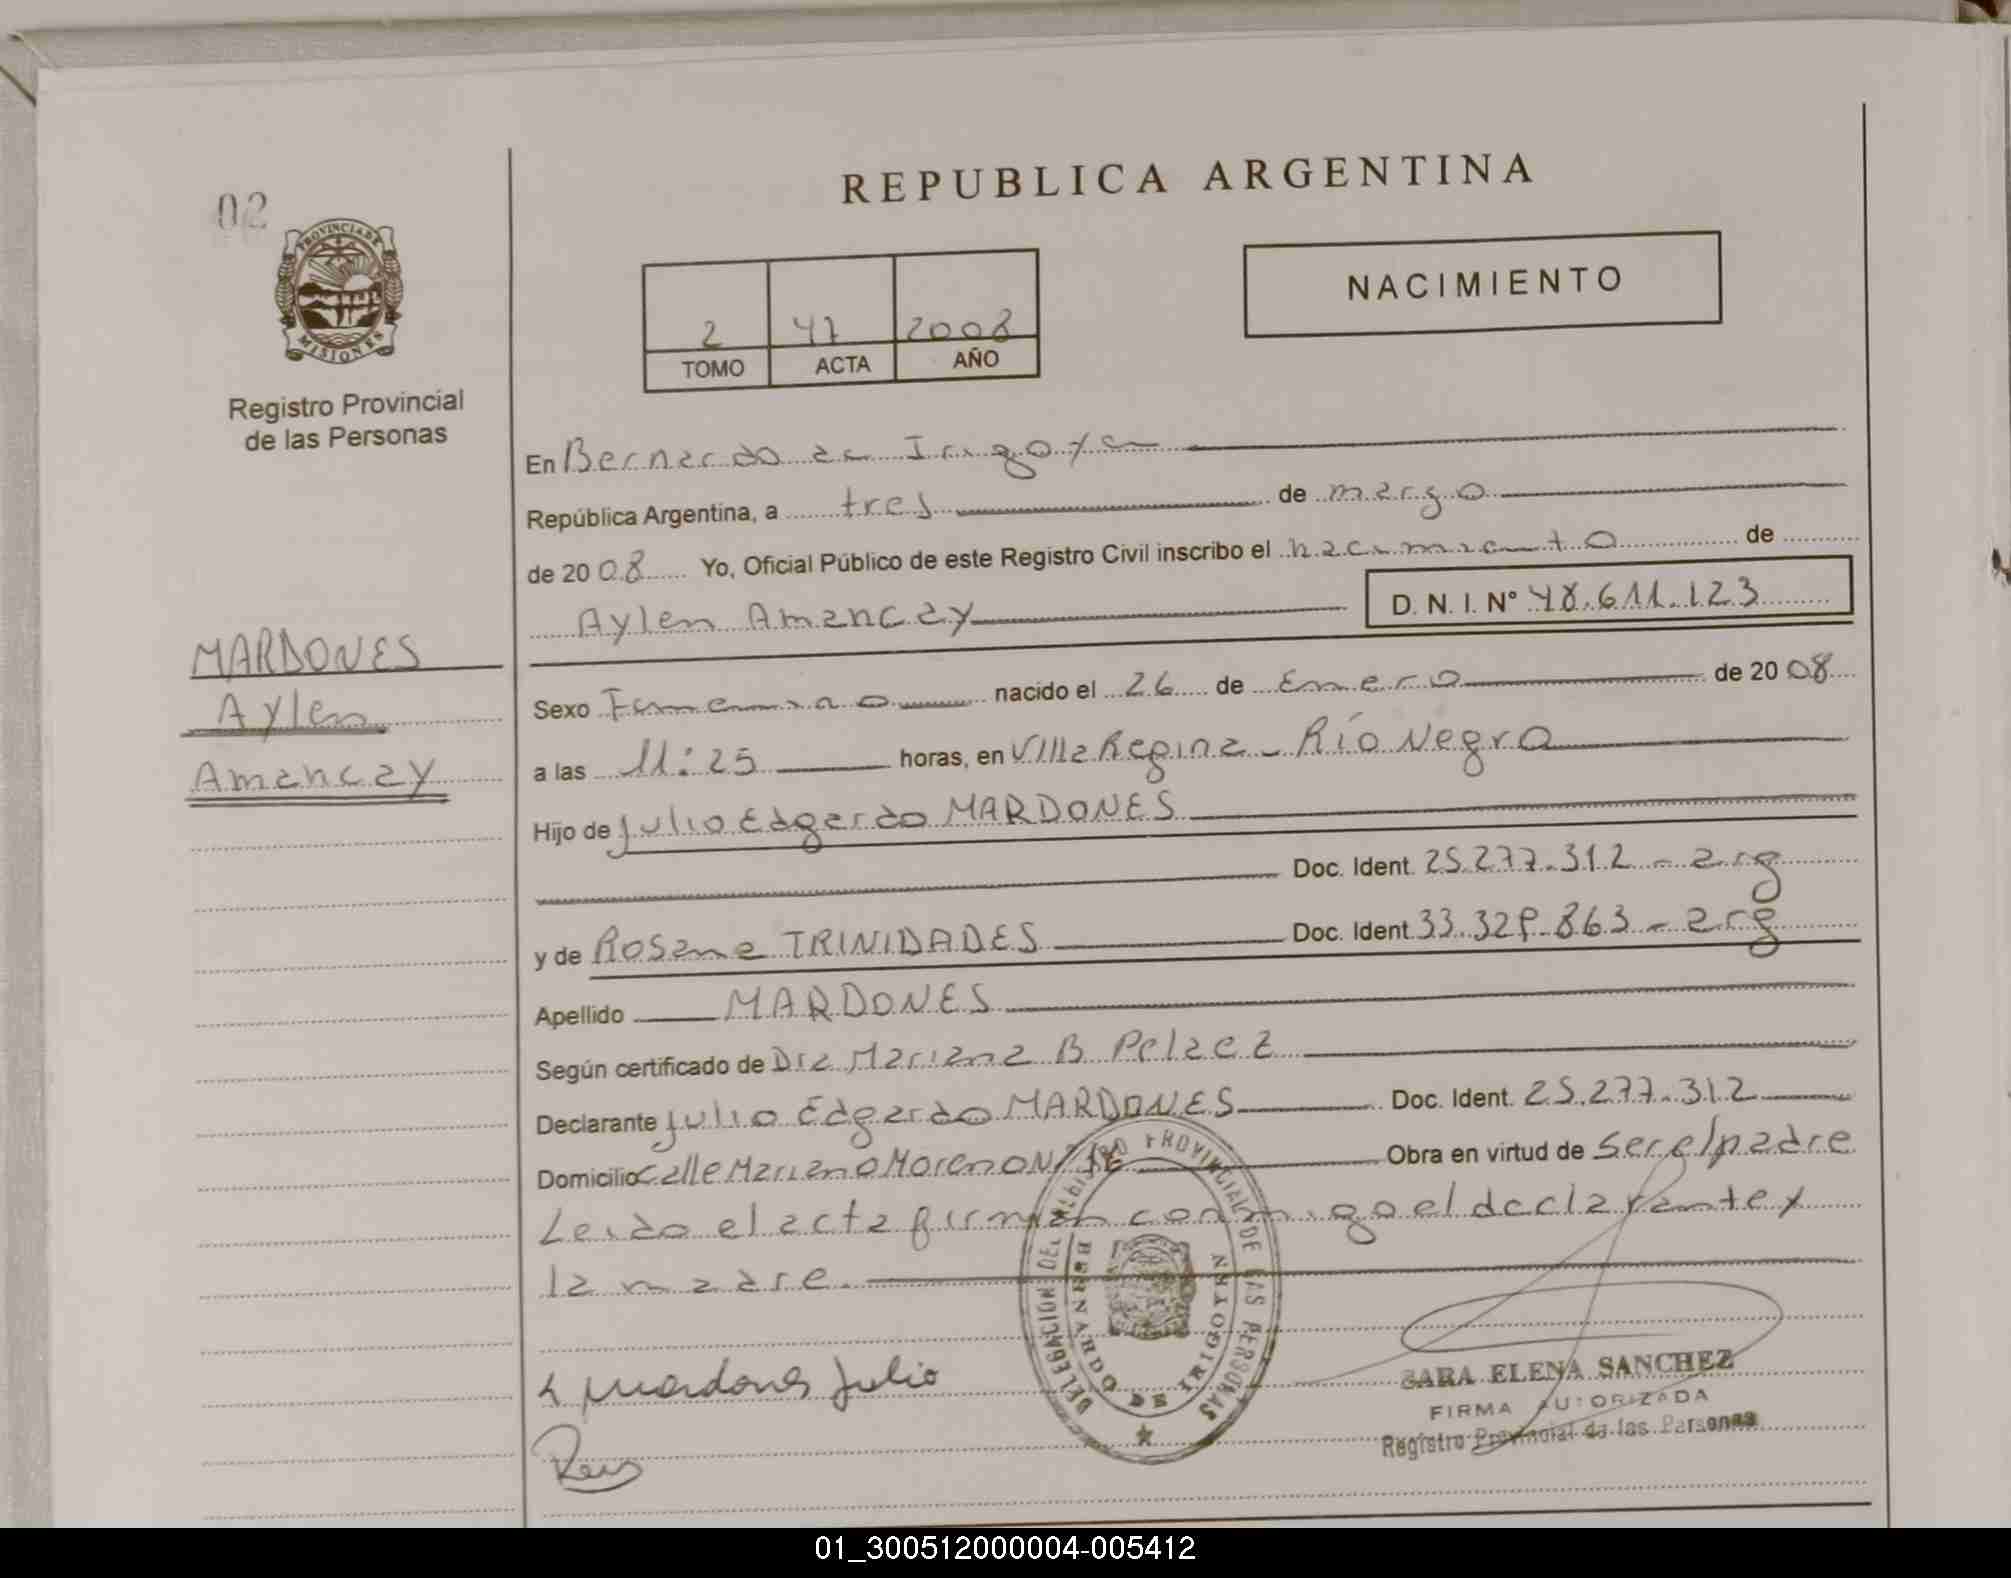 REPUBLICA ARGENTINA
02
PROVINCIA DE
MISIONES
Registro Provincial
de las Personas
NACIMIENTO
2 47 2008
TOMO ACTA AÑO
En Bernardo de Irigoyen
República Argentina, a tres de marzo
de 2008 Yo, Oficial Público de este Registro Civil inscribo el nacimiento de
Aylen Amancay D. N. I. N° 48.611.123
MARDONES
Aylen
Amancay
Sexo Femenino nacido el 26 de Enero de 2008
a las 11:25 horas, en Villa Regina - Río Negro
Hijo de Julio Edgardo MARDONES
Doc. Ident. 25.277.312 - arg
y de Rosana TRINIDADES Doc. Ident. 33.329.863 - arg
Apellido MARDONES
Según certificado de Dra Mariana B Pelaez
Declarante Julio Edgardo MARDONES Doc. Ident. 25.277.312
Domicilio calle Mariano Moreno Obra en virtud de ser el padre
Leido el acta firman conmigo el declarante y
la madre.
Mardones Julio
DELEGACION DEL REGISTRO PROVINCIAL DE LAS PERSONAS
BERNARDO DE IRIGOYEN
SARA ELENA SANCHEZ
FIRMA AUTORIZADA
Registro Provincial de las Personas
01_300512000004-005412